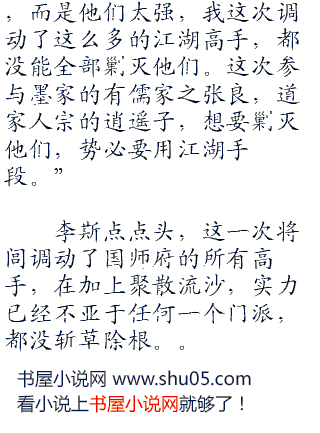 ，而是他们太强，我这次调
动了这么多的江湖高手，都
没能全部剿灭他们。这次参
与墨家的有儒家之张良，道
家人宗的逍遥子，想要剿灭
他们，势必要用江湖手
段。”
李斯点点头，这一次将
闾调动了国师府的所有高
手，在加上聚散流沙，实力
已经不亚于任何一个门派，
都没斩草除根。。
书屋小说网 www.shu05.com
看小说上书屋小说网就够了！